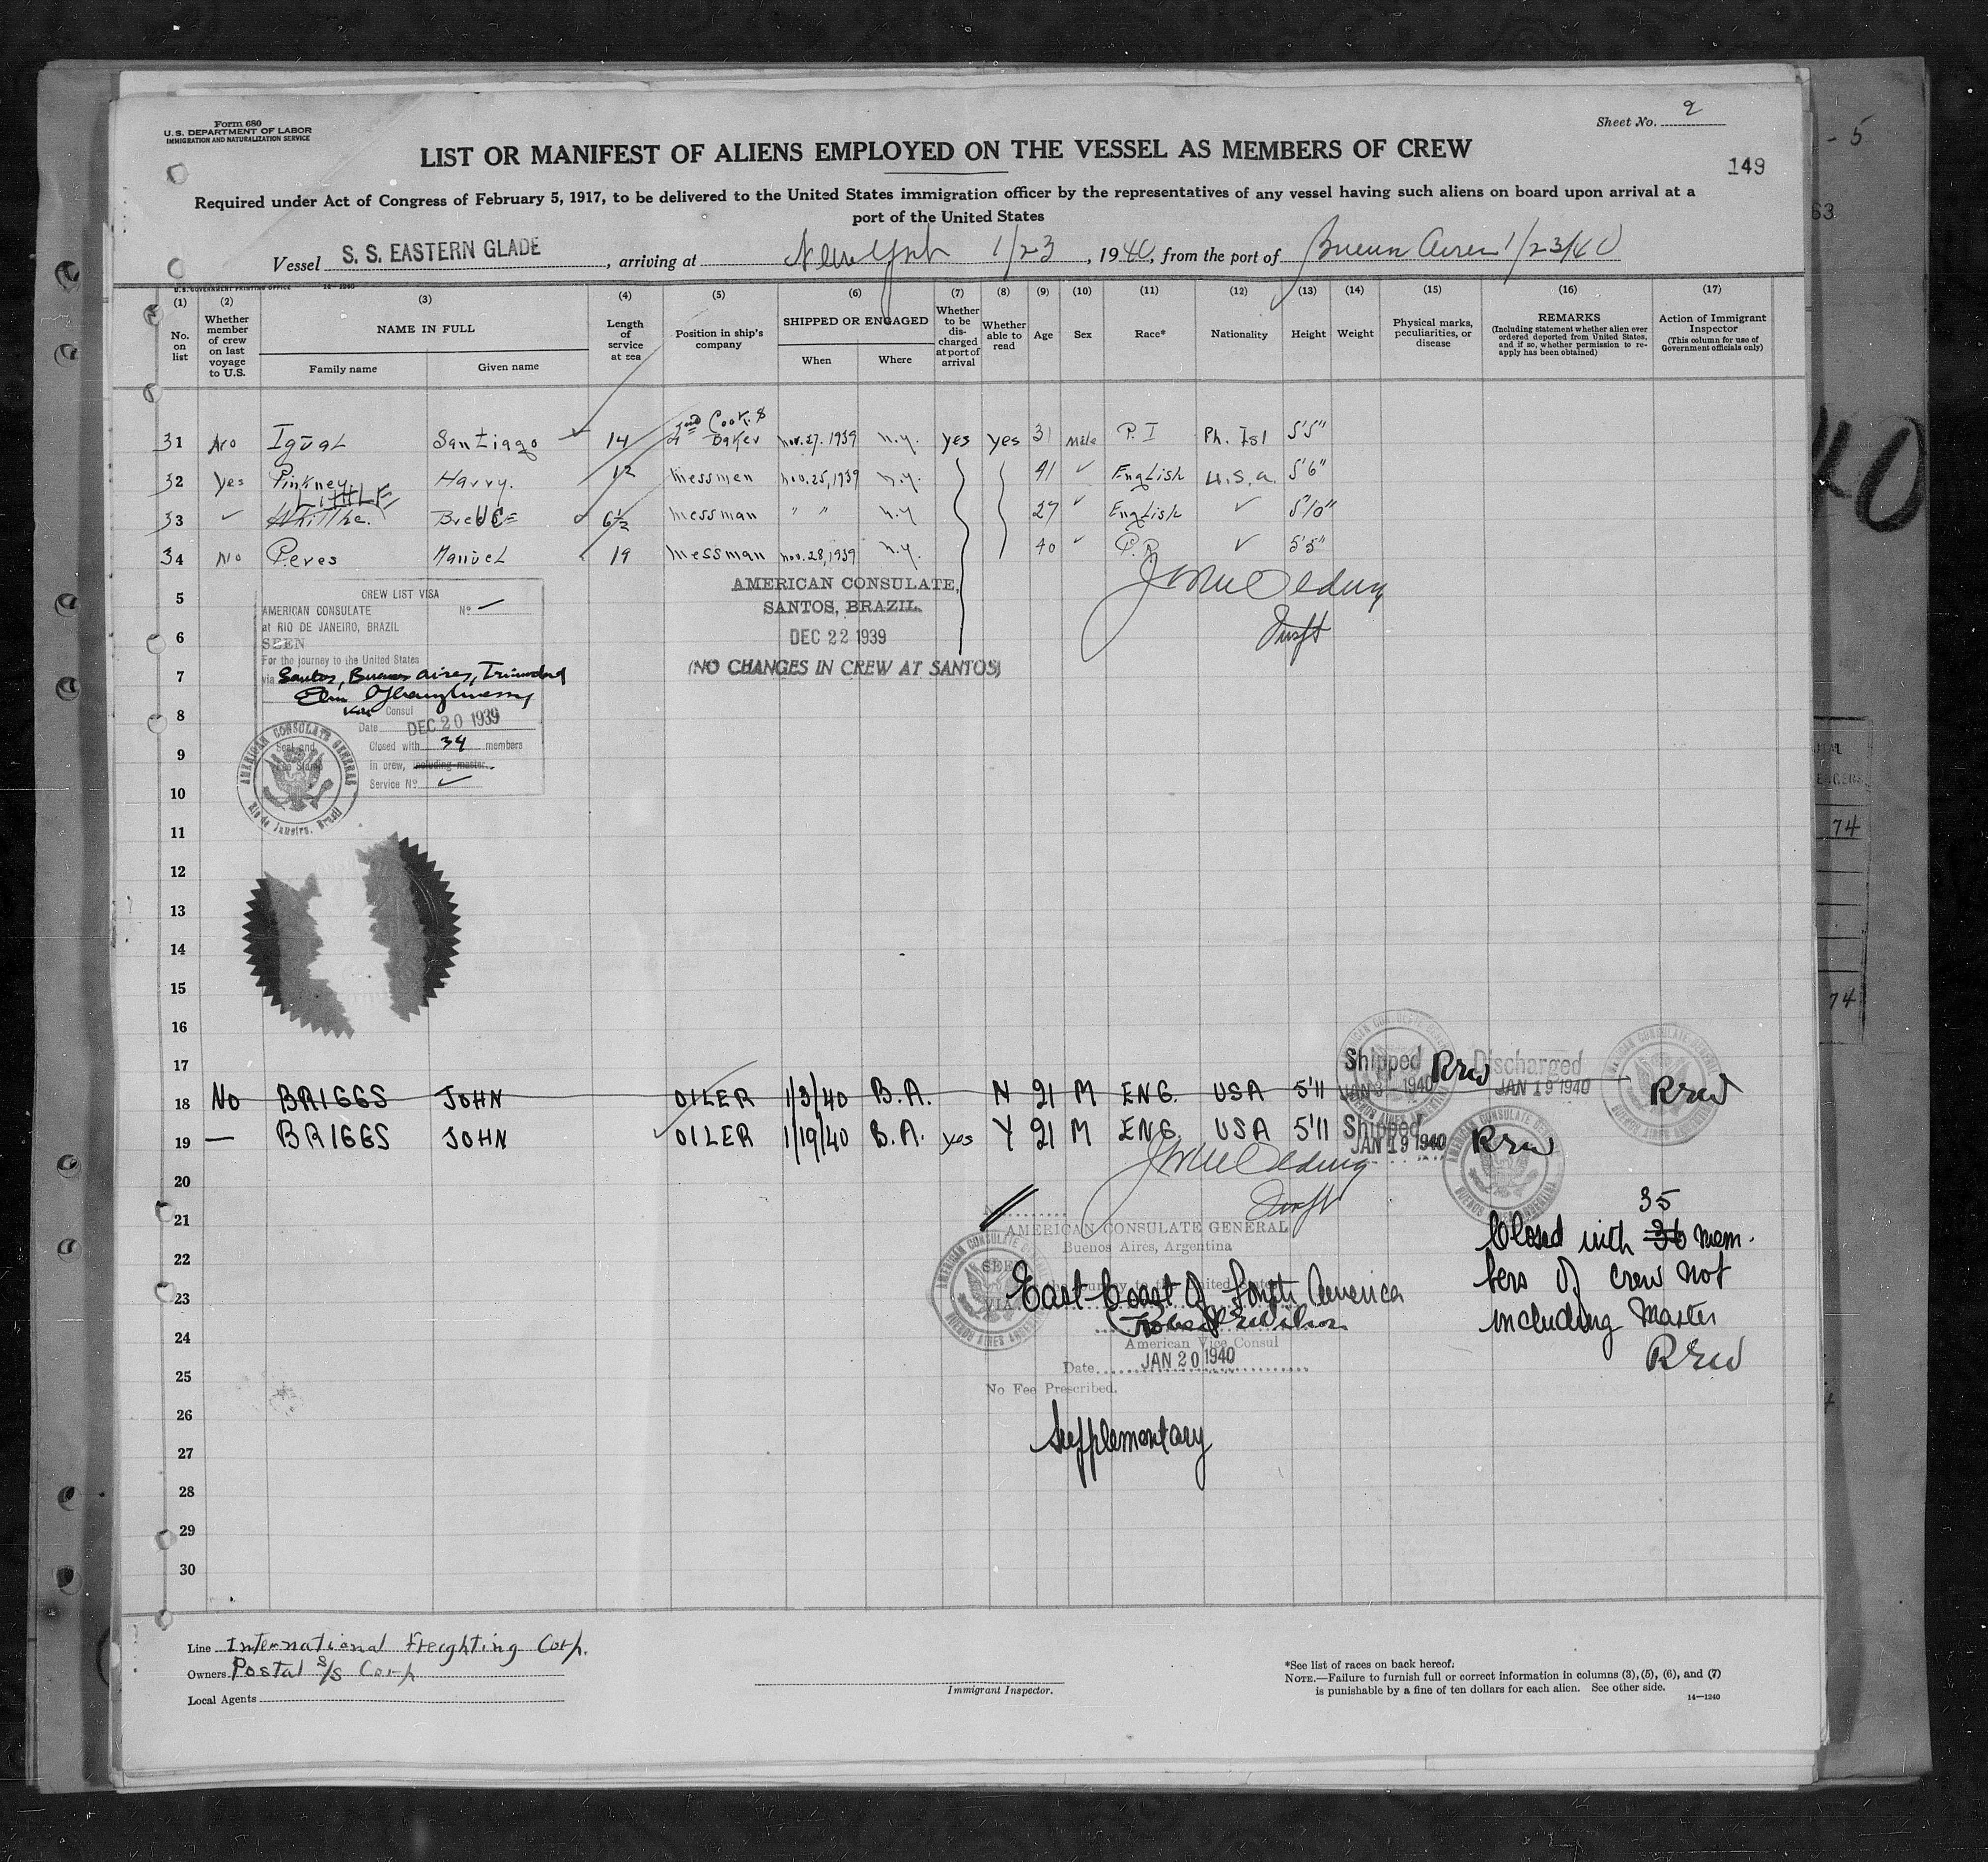 Form 680
U. S. DEPARTMENT OF LABOR
IMMIGRATION AND NATURALIZATION SERVICE
Sheet No. 2
LIST OR MANIFEST OF ALIENS EMPLOYED ON THE VESSEL AS MEMBERS OF CREW
149
Required under Act of Congress of February 5, 1917, to be delivered to the United States immigration officer by the representatives of any vessel having such aliens on board upon arrival at a
port of the United States
Vessel S. S. EASTERN GLADE, arriving at New York 1/23, 1940, from the port of Buenos Aires 1/23/40
U. S. GOVERNMENT PRINTING OFFICE 14—1240
(1) No. on list
(2) Whether member of crew on last voyage to U.S.
(3) NAME IN FULL
Family name
Given name
(4) Length of service at sea
(5) Position in ship's company
(6) SHIPPED OR ENGAGED
When
Where
(7) Whether to be discharged at port of arrival
(8) Whether able to read
(9) Age
(10) Sex
(11) Race*
(12) Nationality
(13) Height
(14) Weight
(15) Physical marks, peculiarities, or disease
(16) REMARKS (Including statement whether alien ever ordered deported from United States, and if so, whether permission to reapply has been obtained)
(17) Action of Immigrant Inspector (This column for use of Government officials only)
31 No Igual Santiago 14 2nd Cook & Baker Nov. 27. 1939 n.y. yes yes 31 Male P. I Ph. Isl 5'5"
32 Yes Pinkney. Harry. 12 Messmen Nov. 25, 1939 n.y. 41 ✓ English U.S.a. 5'6"
LITTLE
33 ✓ Bruce 6½ Messman " " n.y 27 ✓ English ✓ 5'10"
34 No Peres Manuel 19 Messman Nov. 28, 1939 n.y. 40 ✓ P.R. ✓ 5'5"
CREW LIST VISA
AMERICAN CONSULATE No. —
at RIO DE JANEIRO, BRAZIL
SEEN
For the journey to the United States
via Santos, Buenos Aires, Trinidad
Consul
Date DEC 20 1939
Closed with 34 members
in crew, including master.
Service No. ✓
AMERICAN CONSULATE GENERAL
Seal and
Fee Stamp
Rio de Janeiro, Brazil
AMERICAN CONSULATE,
SANTOS, BRAZIL.
DEC 22 1939
(NO CHANGES IN CREW AT SANTOS)
5
6
7
8
9
10
11
12
13
14
15
16
17
Shipped JAN 3 - 1940 REW Discharged JAN 19 1940 REW
18 No BRIGGS JOHN OILER 1/3/40 B.A. N 21 M ENG. USA 5'11
19 — BRIGGS JOHN OILER 1/19/40 B.A. yes Y 21 M ENG. USA 5'11 Shipped JAN 19 1940 REW
20
21
22
23
24
25
26
27
28
29
30
AMERICAN CONSULATE GENERAL
Buenos Aires, Argentina
SEEN
For the journey to the United States
VIA East Coast of South America
Robert E Wilson
American Vice Consul
Date JAN 20 1940
No Fee Prescribed.
Supplementary
35
Closed with 36 mem-
bers of crew not
including Master
REW
Line International Freighting Corp.
Owners Postal S/S Corp
Local Agents
Immigrant Inspector.
*See list of races on back hereof.
NOTE.—Failure to furnish full or correct information in columns (3), (5), (6), and (7)
is punishable by a fine of ten dollars for each alien. See other side.
14—1240
- 5
63
74
74